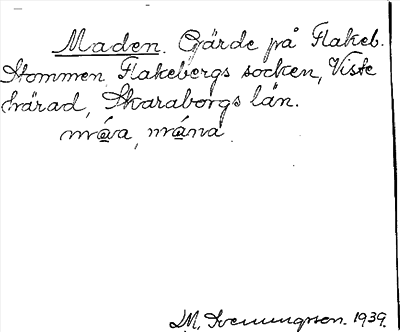 Maden. Gärde på Flakeb.
Stommen, Flakebergs socken, Viste
härad, Skaraborgs län.
máva, mána.
D.M. Svenungsson. 1939.